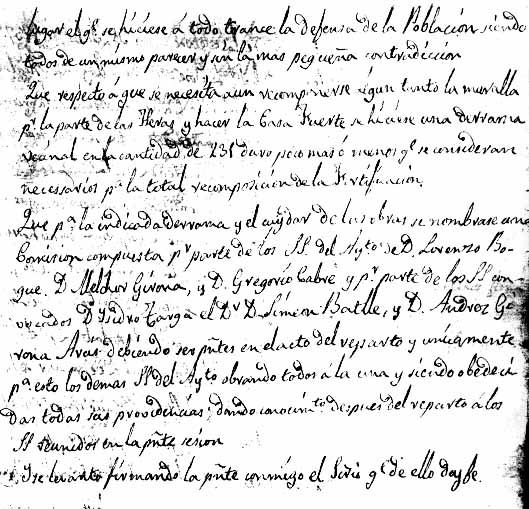 lugar el qe. se hiciese á todo trance la defensa de la Población siendo
todos de un mismo parecer y sin la mas pequeña contradiccion
Que respecto á que se necesita aun recomponerse algun tanto la muralla
pr. la parte de las Heras y hacer la Casa Fuerte se hiciese una derrama
vecinal en la cantidad de 231 duro poco mas ó menos qe. se consideran
necesarios pa. la total recomposicion de la Fortificacion.
Que pa. la indicada derrama y el cuydar de las obras se nombrase una
Comision compuesta pr. parte de los SS. del Aytó. de D. Lorenzo Bo-
gue. D. Melchor Girona, y D. Gregorio Cabre y pr. parte de los SS con-
vocados Dn. Isidro Targa el Dr. D. Simeon Batlle, y D. Andres Ge-
rona Arás debiendo ser pñtes en el acto del reparto y unicamente
pa. esto los demas SS del Aytó obrando todos á la una y siendo obedeci
das todas sus providencias, dando conocimto. despues del reparto á los
SS reunidos en la pñte sesion
Y se levantó firmando la pñte conmigo el Sriò qe. de ello doy fe.